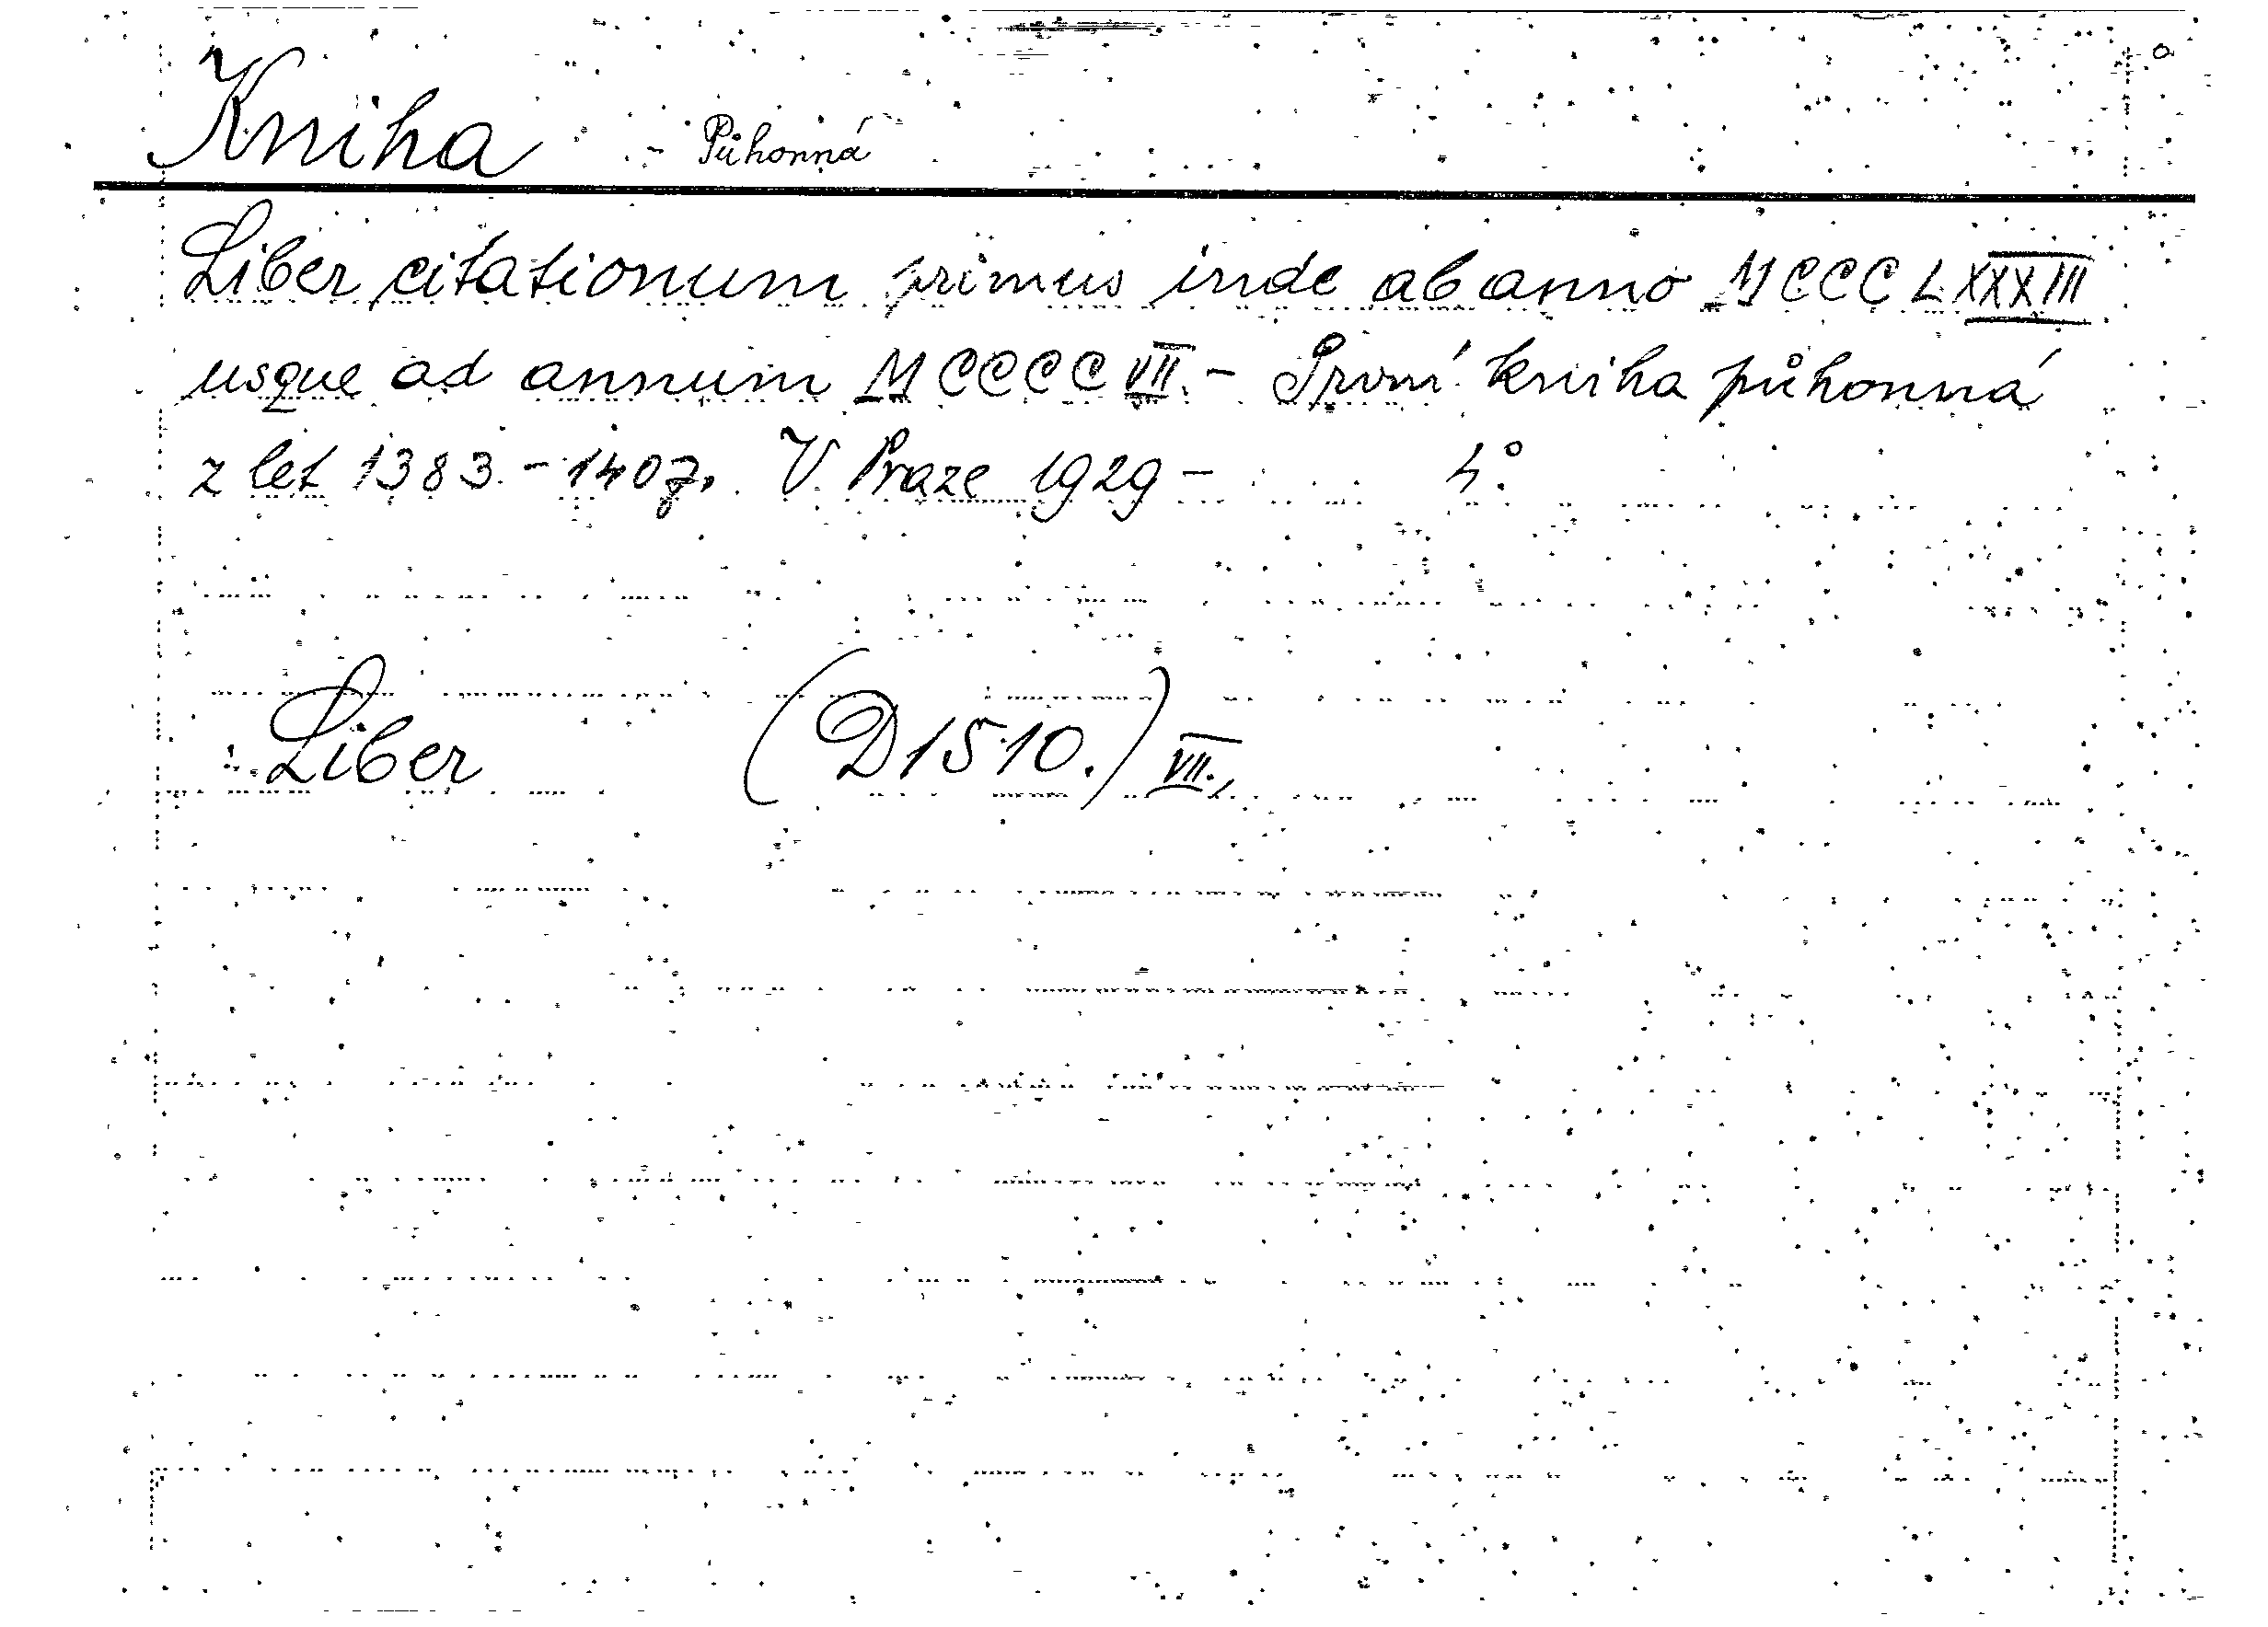 Kniha - Půhonná
Liber citationum primus inde ab anno MCCCLXXXIII
usque ad annum MCCCCVII. - První kniha půhonná
z let 1383. - 1407. V Praze 1929 - 4°.
Liber (D1510.) VII.,